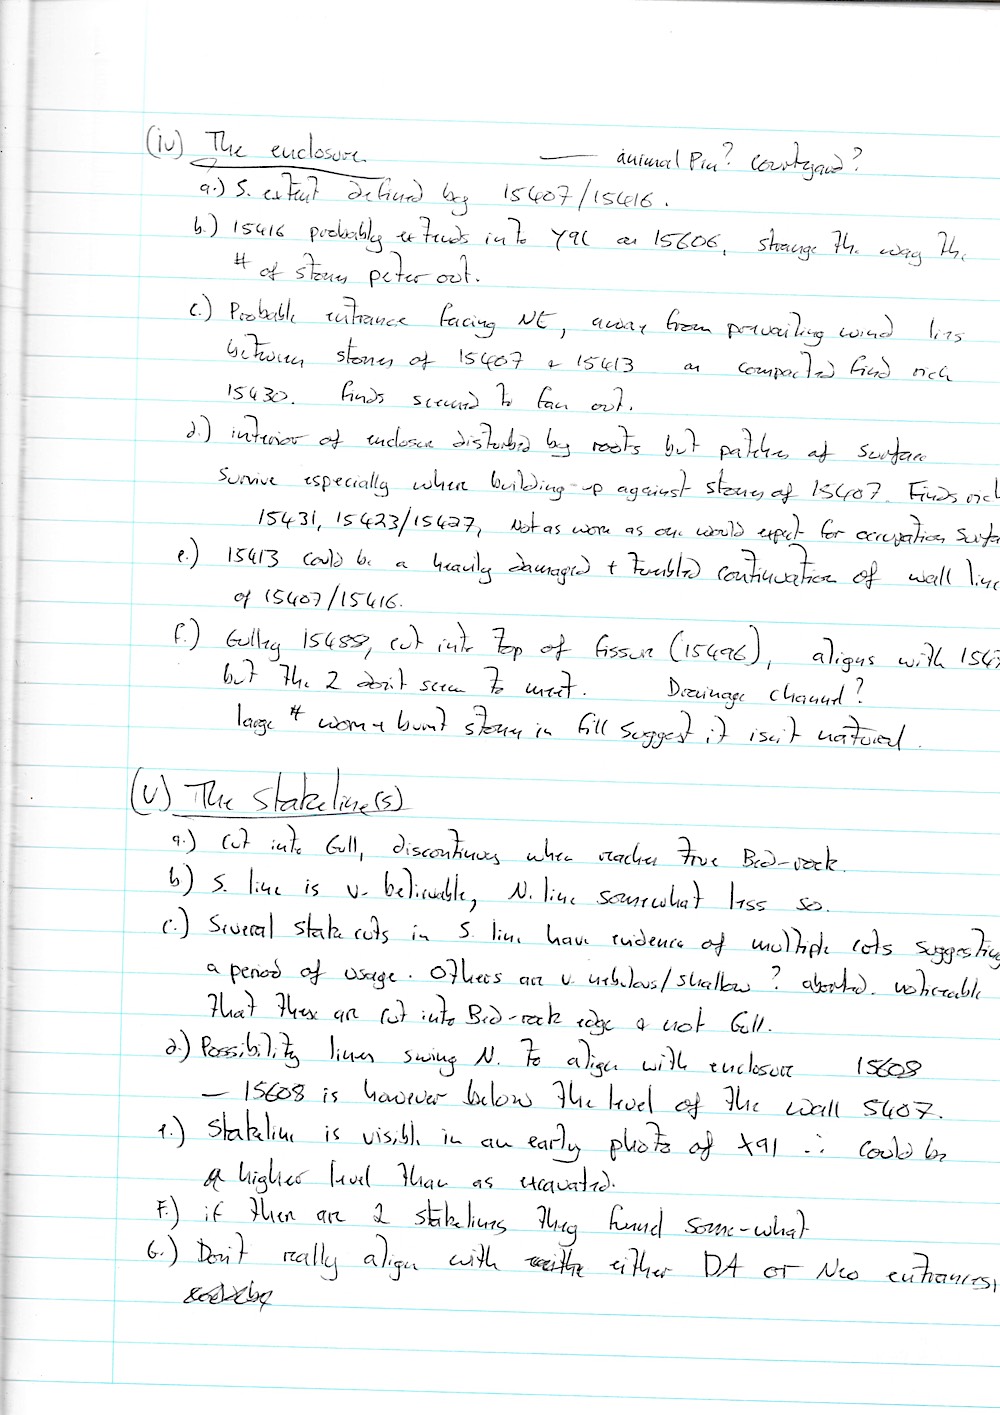 (iv) The enclosure — animal Pen? Courtyard?
a.) S. extent defined by 15407/15416.
b.) 15416 probably extends into Y91 as 15606, strange the way the
# of stones peter out.
c.) Probable entrance facing NE, away from prevailing wind lies
between stones of 15407 + 15413 as compacted find rich
15430. finds seemed to fan out.
d.) interior of enclosure disturbed by roots but patches of surface
survive especially where building-up against stones of 15407. Finds rich
15431, 15423/15427, Not as worn as one would expect for occupation surfa
e.) 15413 could be a heavily damaged + tumbled continuation of wall line
of 15407/15416.
f.) Gulley 15488, cut into top of fissure (15496), aligns with 1547
but the 2 don't seem to meet. Drainage channel?
large # worn + burnt stones in fill suggest it isn't natural.
(v) The stakeline(s)
a.) cut into Gull, discontinues when reaches true Bed-rock.
b) S. line is v. believable, N. line somewhat less so.
c.) Several stake cuts in S. line have evidence of multiple cuts suggesting
a period of usage. Others are v. nebulous/shallow ? aborted. noticeable
that these are cut into Bed-rock edge & not Gull.
d.) Possibility lines swing N. to align with enclosure 15608
— 15608 is however below the level of the wall 5407.
e.) Stakeline is visible in an early photo of X91 ∴ could be
a higher level than as excavated.
F.) if there are 2 stakelines they funnel some-what
G.) Don't really align with either DA or Neo entrances,